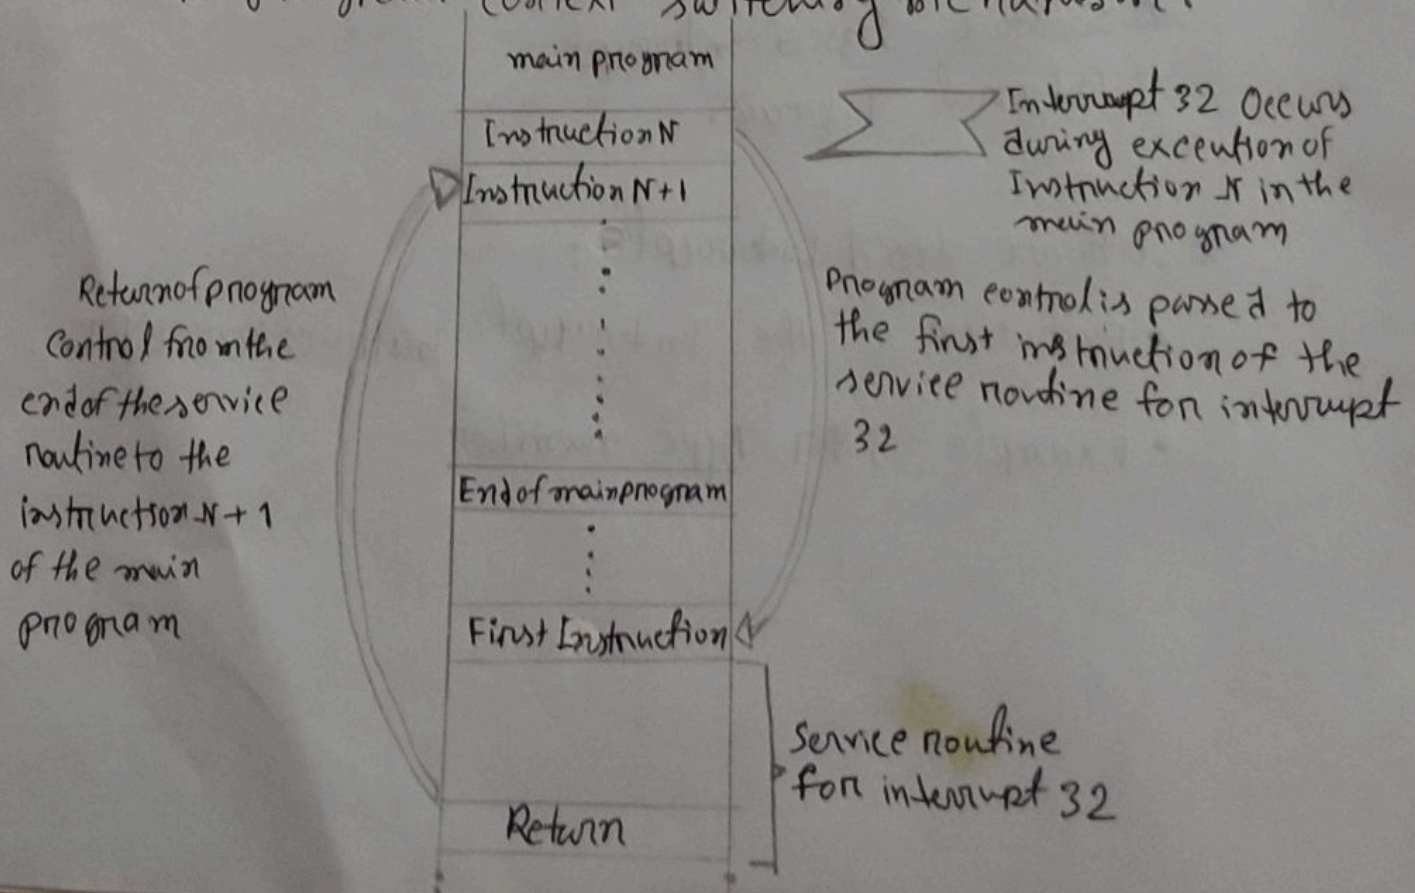 program context switching mechanism:
main program
Instruction N
Instruction N+1
End of main program
First Instruction
Return
Interrupt 32 Occurs
during exceution of
Instruction N in the
main program
Program control is passed to
the first instruction of the
service routine for interrupt
32
Return of program
Control from the
end of the service
routine to the
instruction N+1
of the main
program
Service routine
for interrupt 32